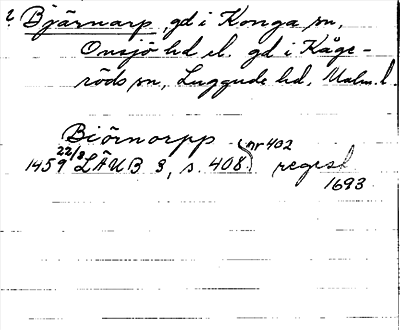 ? Bjärnarp, gd i Konga sn,
Onsjö hd el. gd i Kåge-
röds sn, Luggude hd, Malm. l.
Biörnorpp
1459 22/8 LÄUB 3, s. 408 (nr 402) regist
1693